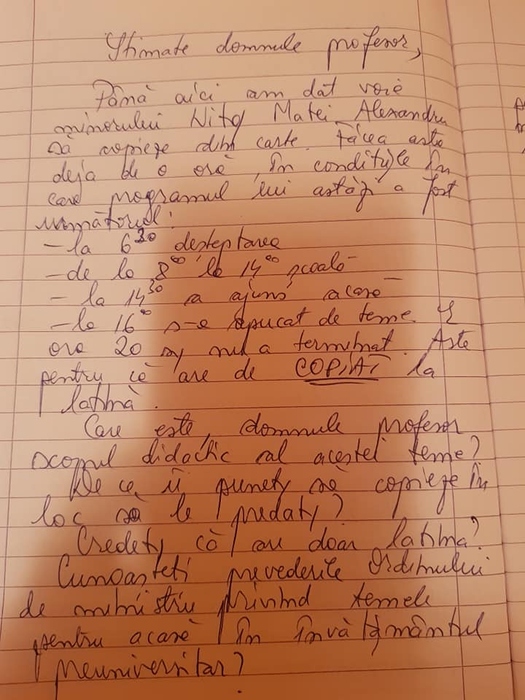 Stimate domnule profesor,
Până aici am dat voie
minorului Nița Matei Alexandru
să copieze din carte. Făcea asta
deja de o oră, în condițiile în
care programul lui astăzi a fost
următorul:
- la 6³⁰ deșteptarea
- de la 8⁰⁰ la 14⁰⁰ școală
- la 14³⁰ a ajuns acasă
- la 16⁰⁰ s-a apucat de teme. E
ora 20 și nu a terminat. Asta
pentru că are de COPIAT la
latină.
Care este, domnule profesor
scopul didactic al acestei teme?
De ce îi puneți să copieze în
loc să le predați?
Credeți că au doar latina?
Cunoașteți prevederile Ordinului
de ministru privind temele
pentru acasă în învățământul
preuniversitar?